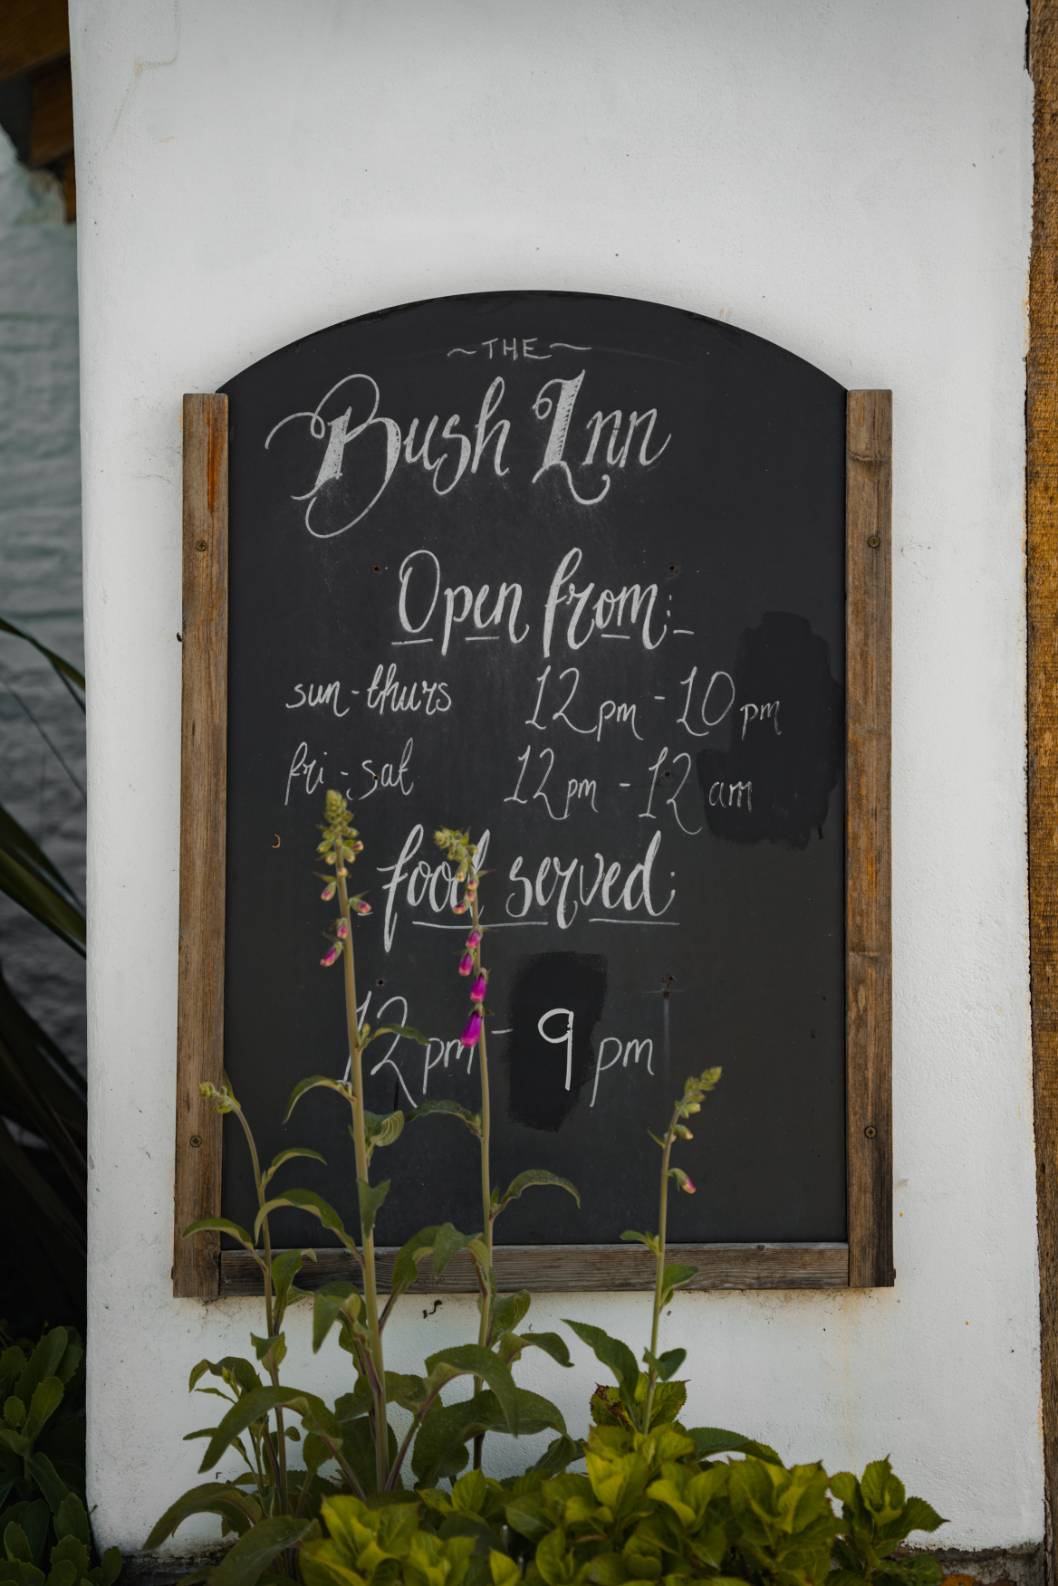 ~THE~
Bush Inn
Open from:-
sun-thurs 12pm - 10pm
fri-sat 12pm - 12 am
food served:
12pm - 9pm